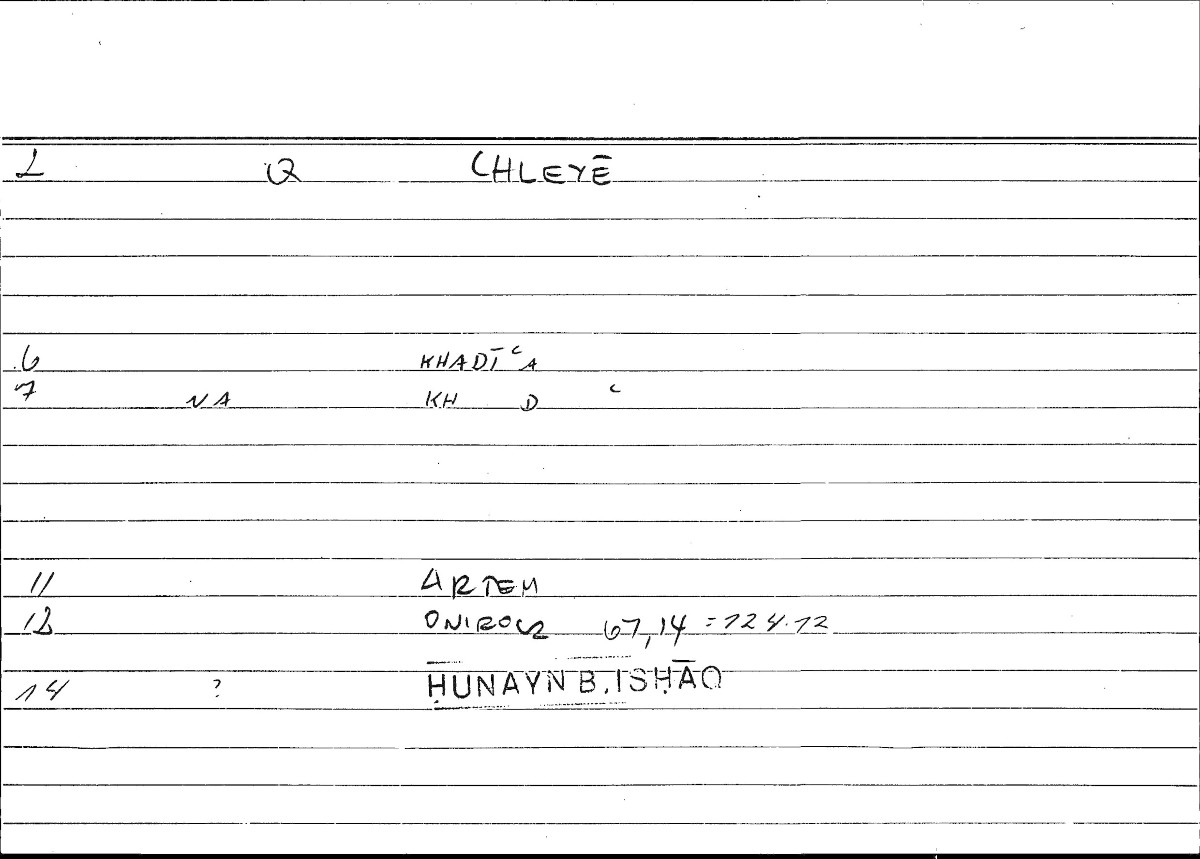 L Q CHLEYĒ
6 KHADĪʿA
7 NA KH D ʿ
11 ARTEM
12 ONIROCR 67,14 = 124.12
14 ? ḤUNAYN B. ISḤĀQ